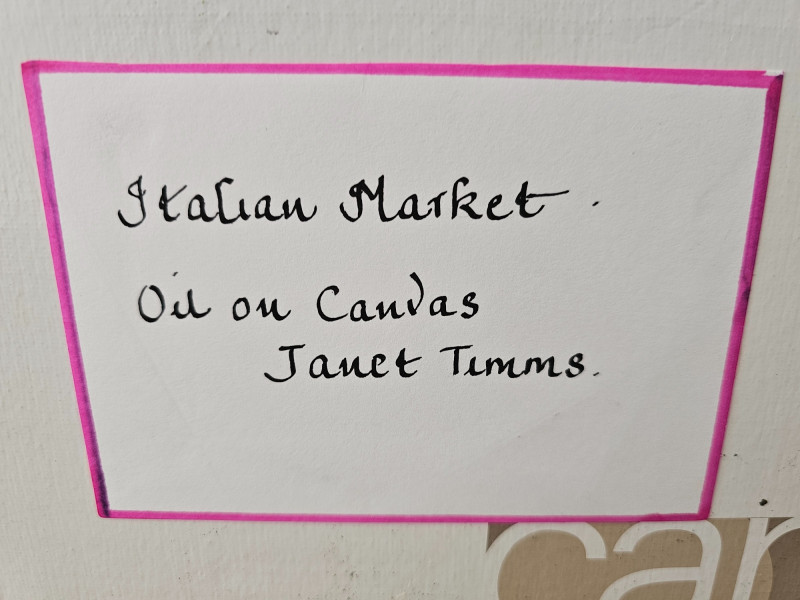 Italian Market.
Oil on Canvas
Janet Timms.